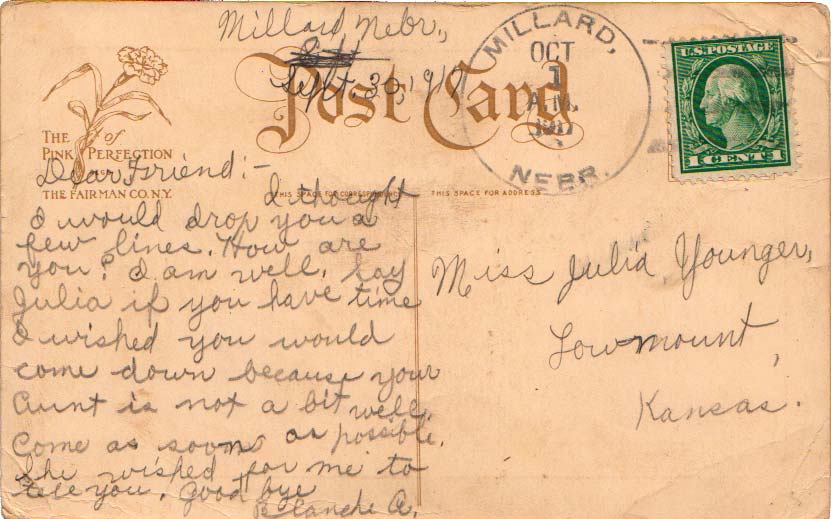 Millard Nebr.,
Sept. 30, 1917
Post Card
MILLARD,
OCT
1
A.M.
1917
NEBR.
U.S. POSTAGE
1 CENT 1
THE of
PINK PERFECTION
THE FAIRMAN CO. N.Y.
THIS SPACE FOR CORRESPONDENCE
THIS SPACE FOR ADDRESS
Dear Friend:-
I thought
I would drop you a
few lines. How are
you? I am well. Say
Julia if you have time
I wished you would
come down because your
Aunt is not a bit well.
Come as soon as possible.
She wished for me to
tell you. Good bye
Blanche A.
Miss Julia Younger,
Lowmount,
Kansas.